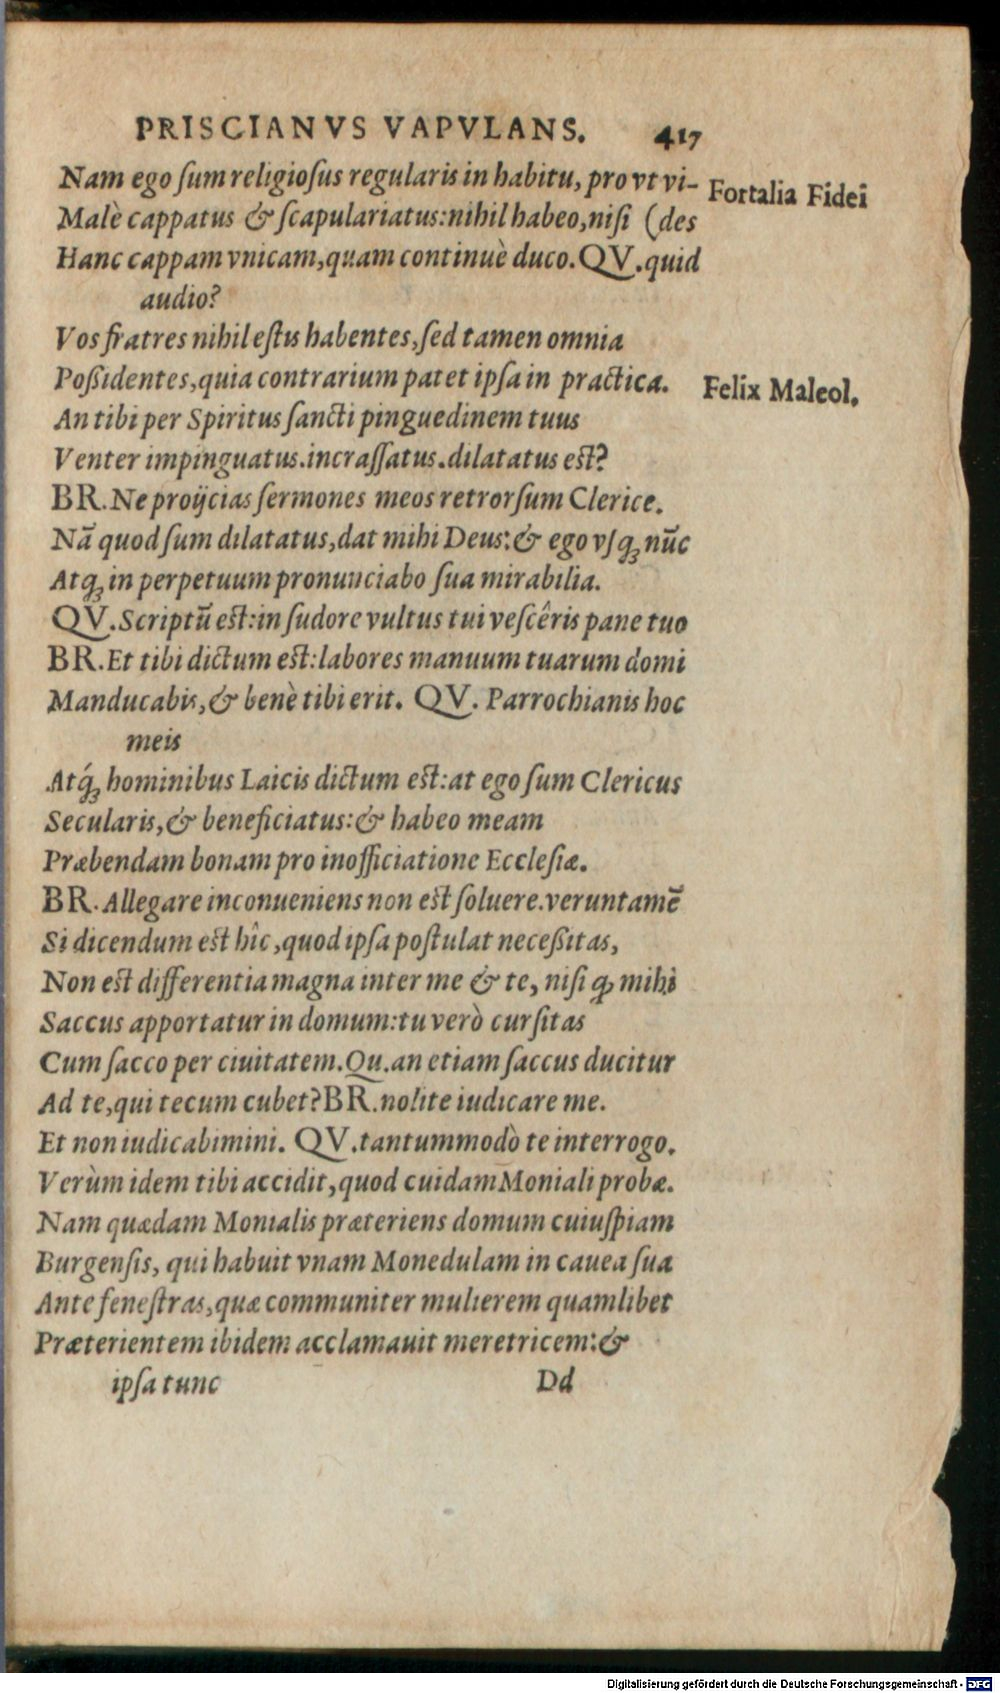 PRISCIANVS VAPVLANS. 417
Nam ego ſum religioſus regularis in habitu, pro vt vi-
Fortalia Fidei
Malè cappatus & ſcapulariatus: nihil habeo, niſi (des
Hanc cappam vnicam, quam continuè duco. QV. quid
audio?
Vos fratres nihil eſtis habentes, ſed tamen omnia
Poßidentes, quia contrarium patet ipſa in practica.
Felix Maleol.
An tibi per Spiritus ſancti pinguedinem tuus
Venter impinguatus. incraſſatus. dilatatus eſt?
BR. Ne proijcias ſermones meos retrorſum Clerice.
Nã quod ſum dilatatus, dat mihi Deus: & ego vſq; nũc
Atq; in perpetuum pronunciabo ſua mirabilia.
QV. Scriptũ eſt: in ſudore vultus tui veſcêris pane tuo
BR. Et tibi dictum eſt: labores manuum tuarum domi
Manducabis, & benè tibi erit. QV. Parrochianis hoc
meis
Atq́; hominibus Laicis dictum eſt: at ego ſum Clericus
Secularis, & beneficiatus: & habeo meam
Præbendam bonam pro inofficiatione Eccleſiæ.
BR. Allegare inconueniens non eſt ſoluere. veruntamẽ
Si dicendum eſt hîc, quod ipſa poſtulat neceßitas,
Non eſt differentia magna inter me & te, niſi ꝙ mihi
Saccus apportatur in domum: tu verò curſitas
Cum ſacco per ciuitatem. Qu. an etiam ſaccus ducitur
Ad te, qui tecum cubet? BR. nolite iudicare me.
Et non iudicabimini. QV. tantummodò te interrogo.
Verùm idem tibi accidit, quod cuidam Moniali probæ.
Nam quædam Monialis præteriens domum cuiuſpiam
Burgenſis, qui habuit vnam Monedulam in cauea ſua
Ante feneſtras, quæ communiter mulierem quamlibet
Præterientem ibidem acclamauit meretricem: &
ipſa tunc Dd
Digitalisierung gefördert durch die Deutsche Forschungsgemeinschaft - DFG